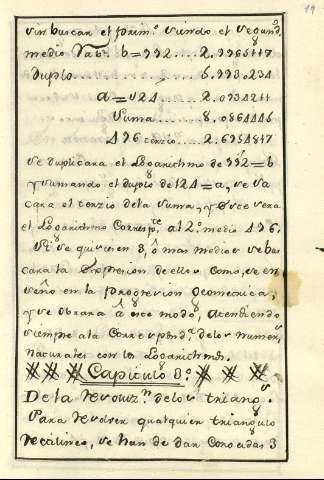 19
sin buscar el prim.º siendo el segund.º
medio Tab.ª b=992 .... 2.9965117
Duplo ........ 5.9930234
a=124 ..... 2.0934211
Suma ..... 8.0864445
496 tercio .. 2.6954817
se duplicara el Logarithmo de 992=b
y sumando el duplo de 124=a, se sa
cara el tercio de la suma, y este sera
el Logarithmo Corresp.te al 2.º medio 496.
Si se quisieren 3, ô mas medios se bus
cara la Proporcion de ellos como, se en
seño en la progresion Geometrica,
y se obrara â este modo, atendiendo
siempre ala Correspond.ª delos numer.s
naturales con los Logarithmos.
Capitulo 8º
De la Resoluz.n delos triang.s
Para resolver qualquier triangulo
Rectilineo, se han de dar Conocidas 3